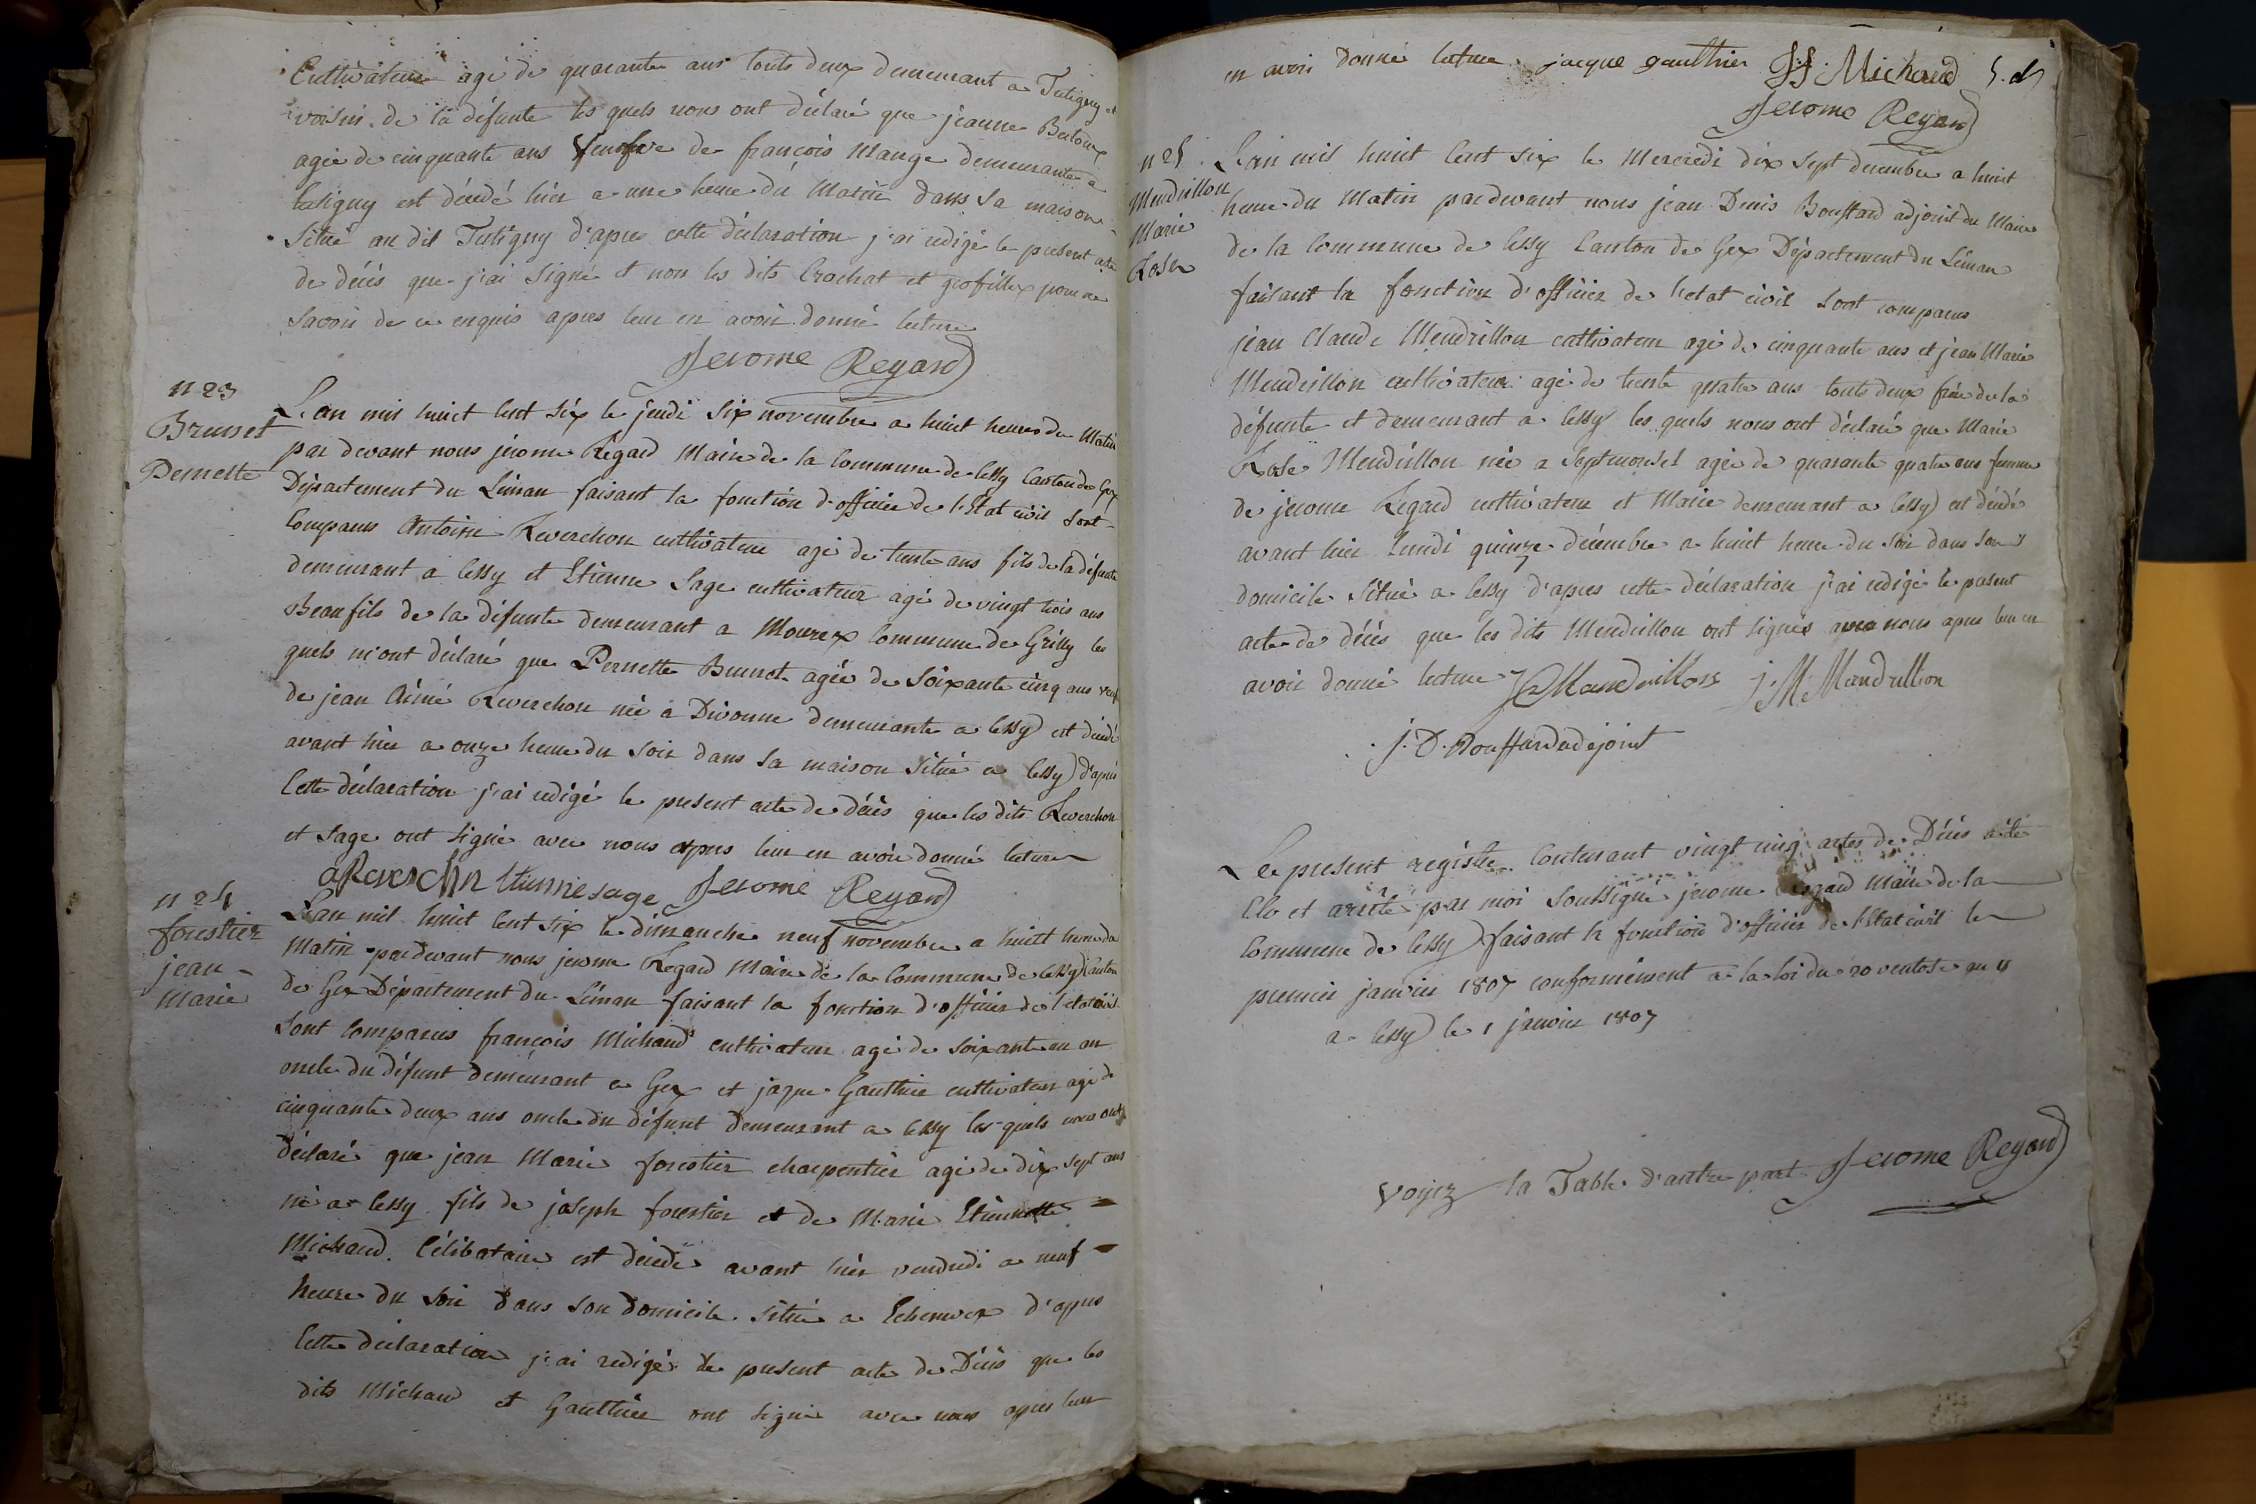 Cultivateur agé de quarante ans touts deux demeurant a Tutigny et
voisin de la défunte les quels nous ont déclaré que jeanne
agée de cinquante ans Veufve de françois Mange demeurante a
Tutigny est décédé hier a une heure du Matin dans sa maison
Situé au dit Tutigny d'apres cette déclaration j'ai redigé le present acte
de décés que j'ai Signé et non les dits Crochat et grofillex pour ne
Savoir de ce enquis apres leur en avoir donné lecture
Jerome Regard
n 23
Brunet
Pernette
L'an mil huit Cent Six le jeudi Six novembre a huit heures du Matin
par devant nous jérome Régard Maire de la Commune de Cessy Canton de Gex
Département du Léman faisant la fonction d'officier de l'Etat civil Sont
Comparus Antoine Reverchon cultivateur agé de trente ans fils de la défunte
demeurant a Cessy et Etienne Sage cultivateur agé de vingt trois ans
Beaufils de la défunte demeurant a Mourex Commune de Grilly les
quels m'ont déclaré que Pernette Brunet agée de Soixante cinq ans veuf
de jean Aimé Reverchon née a Divonne demeurante a Cessy est décédé
avant hier a onze heure du Soir dans Sa maison Située a Cessy d'après
Cette déclaration j'ai redigé le present acte de décés que les dits Reverchon
et Sage ont Signé avec nous apres leur en avoir donné lecture
a Reverchn Etienne sage Jerome Regard
n 24
forestier
jean
Marie
L'an mil huit Cent Six le dimanche neuf novembre a huitt heure du
Matin pardevant nous jerome Regard Maire de la Commune de Cessy Canton
de Gex Département du Léman faisant la fonction d'officier de l'état civil
Sont Comparus françois Michaud cultivateur agé de Soixante un an
oncle du défunt demeurant a Gex et jaque Gauthier cultivateur agé de
cinquante deux ans oncle du défunt demeurant a Cessy les quels nous ont
déclaré que jean Marie forestier charpentier agé de dix Sept ans
né a Cessy fils de joseph forestier et de Marie Etiennette
Michaud Célibataire est décédé avant hier vendredi a neuf
heure du Soir dans son domicile Situé a Echenvex d'apres
Cette déclaration j'ai redigé le present acte de Décès que les
dits Michaud et Gauthier ont Signé avec nous apres leur
en avoir donné lecture jacque gauthier Michaud
Jerome Regard
n 25
Mendrillon
Marie
Rose
L'an mil huit Cent Six le Mercredi dix Sept decembre a huit
heure du Matin pardevant nous jean Denis Bouffard adjoint du Maire
de la Commune de Cessy Canton de Gex Département du Léman
faisant la fonction d'officier de l'etat civil Sont comparus
jean Claude Mendrillon cultivateur agé de cinquante ans et jean Marie
Mendrillon cultivateur agé de trente quatre ans touts deux frère de la
défunte et demeurant a Cessy les quels nous ont déclaré que Marie
Rose Mendrillon née a Septmoncel agée de quarante quatre ans femme
de jerome Regard cultivateur et Maire demeurant a Cessy est décédé
avant hier Lundi quinze décembre a huit heure du Soir dans Son
domicile Situé a Cessy d'apres cette déclaration j'ai redigé le présent
acte de décés que les dits Mendrillon ont Signés avec nous apres leur en
avoir donné lecture Mandrillon j: M: Mandrillion
j. D. Bouffard adejoint
Le present registre Contenant vingt cinq actes de Décés a été
Clo et arrêté par moi Soussigné jerome Regard Maire de la
Commune de Cessy faisant la fonction d'officier de l'Etat civil le
premier janvier 1807 conformément a la loi du 20 ventose an 11
a Cessy le 1 janvier 1807
Voyez la Table d'autre part Jerome Regard